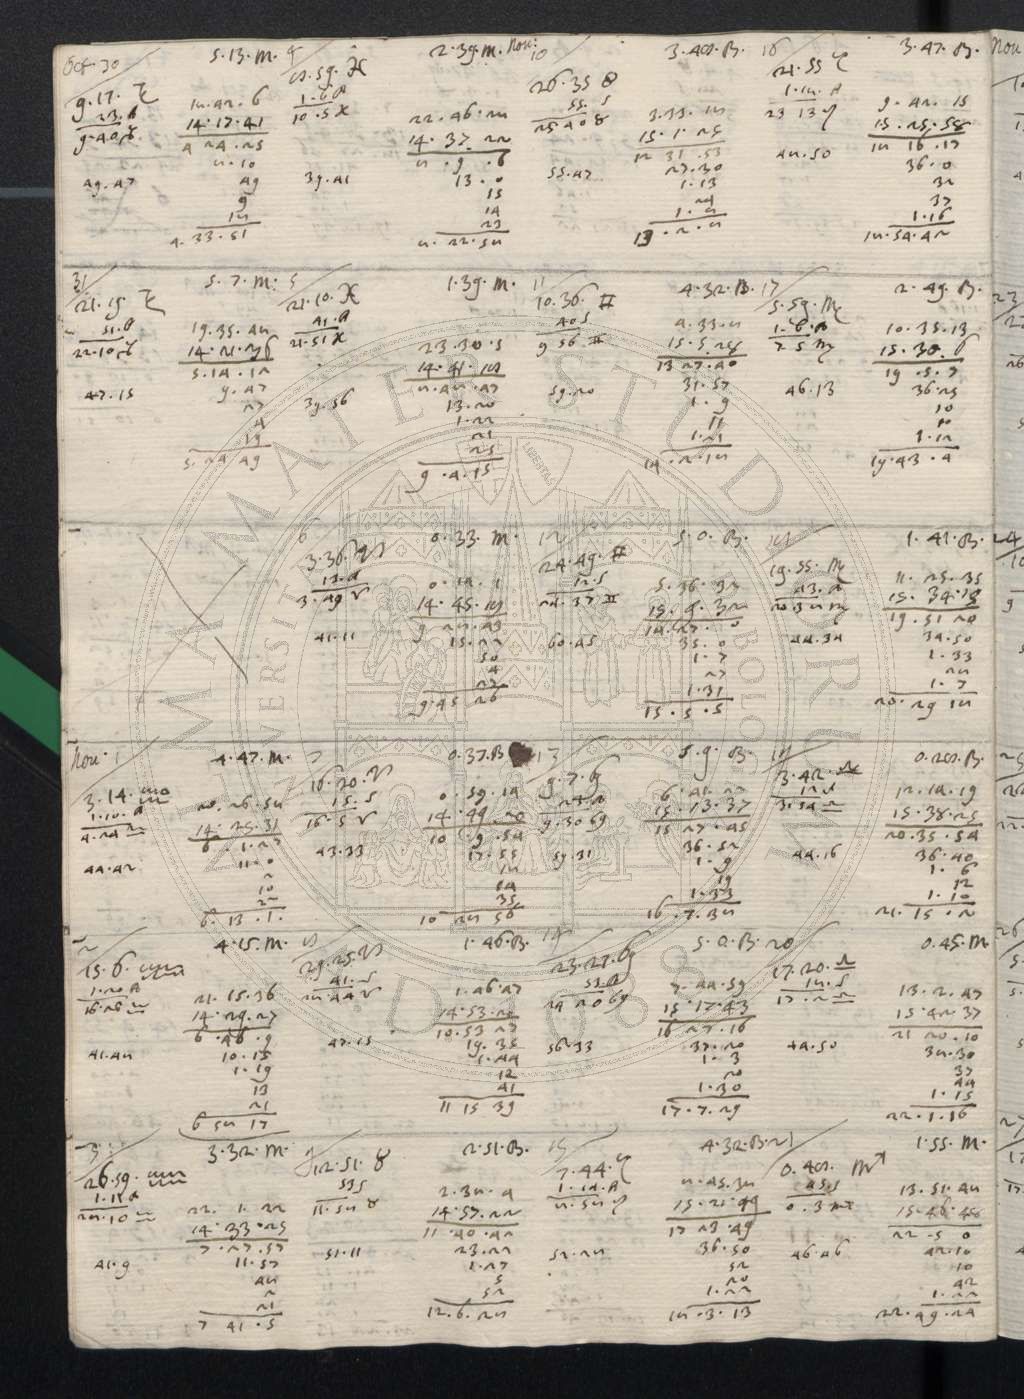 Oct. 30 5.13.M.
9.17. ♑
23.A
9.40.♑
18.42.6
14.17.41
4 24.25
8.10
49.47 49
9
18
4.33.51
4 2.39.M.
8.59. ♓
1.6 A
10.5 ♓
22.46.28
14.37.22
8.9.6
39.41 13.0
15
14
23
8.22.58
Nou: 10 3.48.B.
26.35 ♉
55.S
25.40 ♉
3.33.18
15.1.25
12 31.53
55.47 27.30
1.13
24
1.8
13.2.8
16 3.47.B.
21.55 ♌
1.18.A
23 13 ♌
9.42.15
15.25.58
18 16.17
48.50 36.0
32
37
1.16
18.54.42
31 5.7.M.
21.19. ♑
51.A
22.10.♑
19.35.48
14.21.36
5.14.12
47.15 9.47
27
4
19
5.24 49
5 1.39.M.
21.10. ♓
41.A
21.51 ♓
23.30.5
14.41.18
8.48.47
39.56 13.20
1.22
21
25
9.4.15
11 4.32.B.
10.36. ♊
40 S
9 56 ♊
4.33.8
15.5.28
13 27.40
59.20 31.57
1.9
11
1.21
14.2.18
17 2.49.B.
5.59. ♍
1.6.A
7 5 ♍
10.35.13
15.30.6
19.5.7
46.13 36.25
10
10
1.12
19.43.4
6 0.33.M.
3.36. ♈
13.A
3.49 ♈
0.14.1
14.45.18
9 28.43
41.11 15.22
50
4
27
9.45 26
12 5.0.B.
24.49. ♊
12.S
24.37 ♊
5.36.32
15.9.32
14.27.0
60.45 35.0
1.7
27
1.31
15.5.5
18 1.41.B.
19.55. ♍
43.A
20.38 ♍
11.25.35
15.34.15
19.51 20
44.34 34.50
1.33
28
1.7
20.29 18
Nou: 1 4.47.M.
3.14. ♒
1.10.A
4.24 ♒
20.26.58
14.25.31
6.1.27
44.42 11.0
2
10
22
6.13.1.
7 0.37.B
16.20. ♈
15.S
16.5 ♈
0.59.14
14.49.20
10.9.54
43.33 17.55
18
14
35
10 28 56
13 5.9.B.
9.7. ♋
23.A
9.30 ♋
6.41.22
15.13.37
15 27.45
59.31 36.52
1.9
19
1.33
16.7.38
19 0.28.B.
3.42. ♎
12.A
3.54 ♎
12.14.19
15.38.25
20.35.54
44.16 36.40
1.6
12
1.10
21.15.2
2 4.15.M.
15.6. ♒
1.20 A
16.26 ♒
21.15.36
14.29.27
6.46.9
41.48 10.15
1.19
13
21
6 58 17
8 1.46.B.
29.25. ♈
41.S
28.44 ♈
1.46.47
14.53.20
10.53 27
47.15 19.35
1.44
12
41
11 15 39
14 5.0.B.
23.27. ♋
53.A
24 20 ♋
7.44.59
15.17.43
16 27.16
56.33 37.20
1.3
20
1.30
17.7.29
20 0.45.M
17.20. ♎
18.S
17.2 ♎
13.2.47
15.42 37
21 20.10
44.50 38.30
37
44
1.15
22.1.16
3 3.32.M.
26.59. ♒
1.11 A
28.10 ♒
22.1.22
14.33.25
7.27.57
41.9 11.57
48
2
21
7 41.5
9 2.51.B.
12.51. ♉
53 S
11.58 ♉
2.38.4
14.57.22
11.40.42
51.11 23.22
1.27
5
52
12.6.28
15 4.32.B.
7.44. ♌
1.14.A
8.58 ♌
8.45.38
15.21.49
17 23.49
52.28 36.50
52
20
1.22
18.3.13
21 1.55.M.
0.48. ♏
45 S
0.3 ♏
13.51.48
15.46.48
22.5 0
46.46 42.10
10
42
1.22
22.49.24
Nou
ALMA MATER STUDIORUM